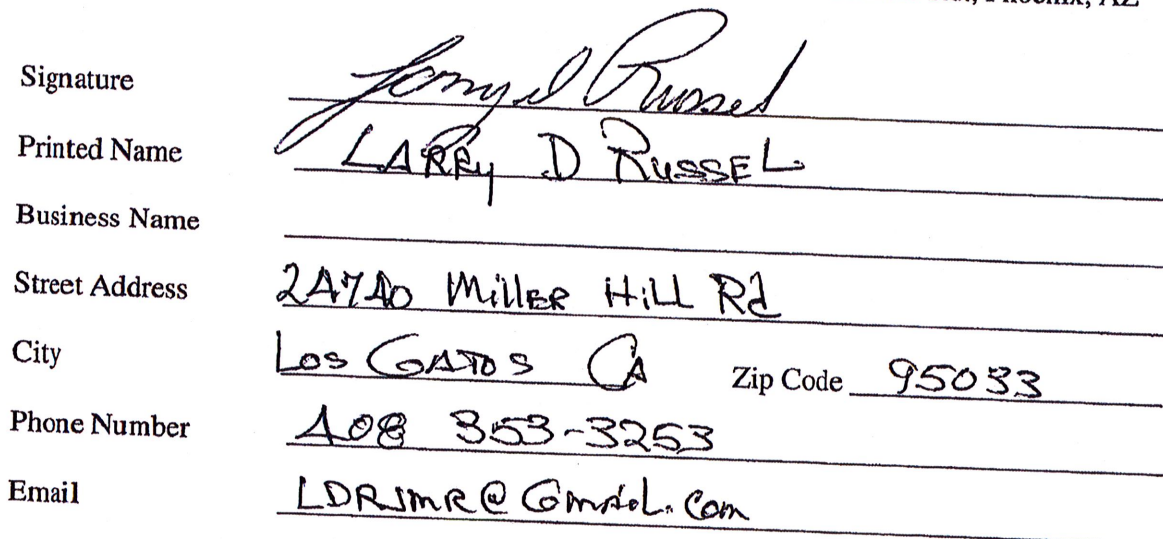 Phoenix, AZ
Signature Larry D Russel
Printed Name LARRy D RussEL
Business Name
Street Address 24740 MillER HiLL Rd
City Los GATOS CA Zip Code 95033
Phone Number 408 353-3253
Email LDRJMR@GmaiL.Com